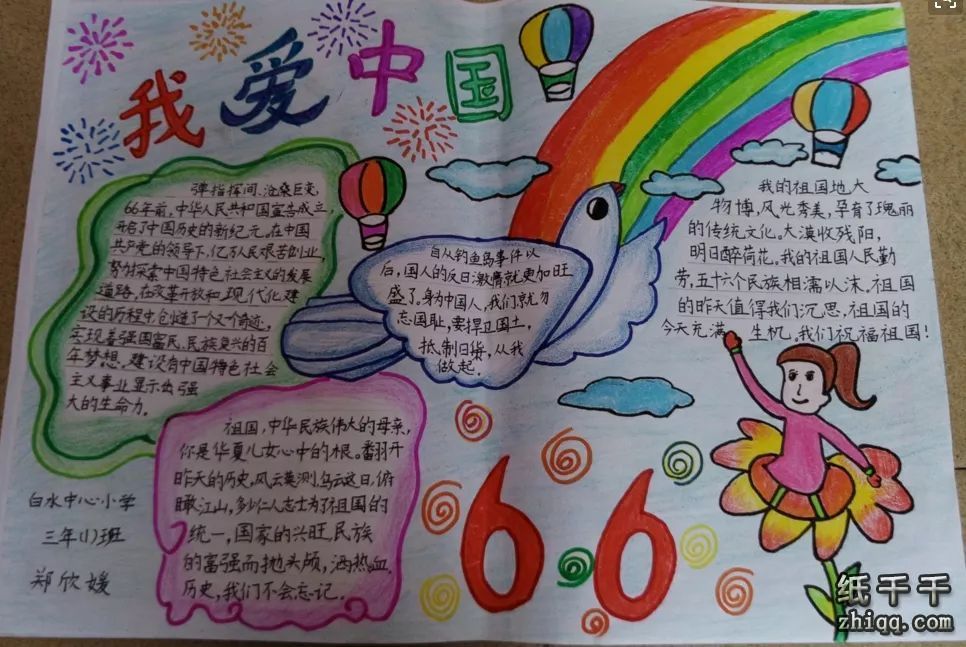 我爱中国
弹指挥间、沧桑巨变,
66年前,中华人民共和国宣告成立,
开启了中国历史的新纪元,在中国
共产党的领导下,亿万人民艰苦创业,
努力探索中国特色社会主义的发展
道路,在改革开放和现代化建
设的历程中创造了一个又一个奇迹,
实现着强国富民、民族复兴的百
年梦想,建设有中国特色社会
主义事业显示出强
大的生命力。
自从钓鱼岛事件以
后,国人的反日激情就更加旺
盛了。身为中国人,我们就勿
忘国耻,要捍卫国土,
抵制日货,从我
做起。
我的祖国地大
物博,风光秀美,孕育了瑰丽
的传统文化。大漠收残阳,
明日醉荷花。我的祖国人民勤
劳,五十六个民族相濡以沫。祖国
的昨天值得我们沉思。祖国的
今天充满生机。我们祝福祖国!
祖国,中华民族伟大的母亲,
你是华夏儿女心中的根。翻开
昨天的历史,风云莫测,乌云这日,俯
瞰江山,多少仁人志士为了祖国的
统一,国家的兴旺,民族
的富强而抛头颅,洒热血,
历史,我们不会忘记。
白水中心小学
三年(1)班
郑欣媛
66
纸千千
zhiqq.com